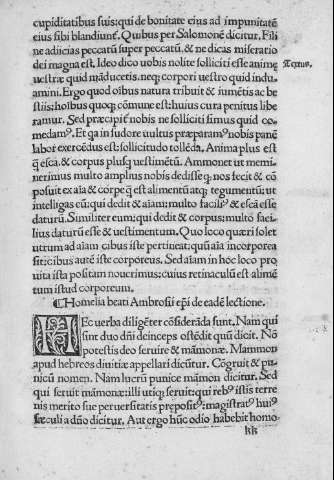 cupiditatibus suis: qui de bonitate eius ad impunitatē
eius sibi blandiunť. Quibus per Salomonē dicitur. Fili
ne adiicias peccatū super peccatū. & ne dicas miseratio
dei magna est. Ideo dico uobis nolite solliciti esse animę
uestrę quid māducetis. neq; corpori uestro quid indu-
amini. Ergo quod oībus natura tribuit & iumētis ac be
stiis: hoībus quoq; cōmune est: huius cura penitus libe
ramur. Sed pręcipiť nobis ne solliciti simus quid co-
medamꝰ. Et qa in sudore uultus pręparamꝰ nobis panē
labor exercēdus est: sollicitudo tollēda. Anima plus est
q̄ esca. & corpus plusq̄ uestimētū. Ammonet ut memi-
nerimus multo amplius nobis dedisse q; nos fecit & cō
posuit ex aīa & corpe q̄ est alimentū atq; tegumentū: ut
intelligas eū: qui dedit & aīam: multo faciliꝰ & escā esse
daturū. Similiter eum: qui dedit & corpus: multo faci-
lius daturū esse & uestimentum. Quo loco quæri solet
utrum ad aīam cibus iste pertineat: quū aīa incorporea
sit: cibus autē iste corporeus. Sed aīam in hoc loco pro
uita ista positam nouerimus: cuius retinaculū est alimē
tum istud corporeum.
¶Homelia beati Ambrosii epi de eadē lectione.
HEc uerba diligēter cōsiderāda sunt. Nam qui
sint duo dn̄i deinceps ostēdit quū dicit. Nō
potestis deo seruire & māmonæ. Mammon
apud hebreos diuitiæ appellari dicūtur. Cōgruit & pu
nicū nomen. Nam lucrū punice māmon dicitur. Sed
qui seruit māmonæ: illi utiq; seruit: qui rebꝰ istis terre
nis merito suę peruersitatis prępositꝰ: magistratꝰ huiꝰ
sæculi a dn̄o dicitur. Aut ergo hūc odio habebit homo
kk
Textus.